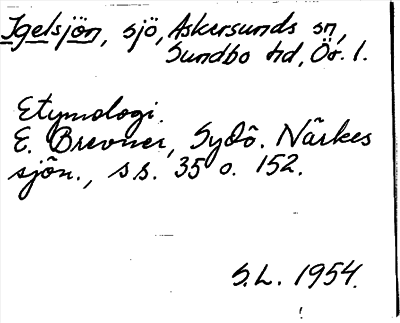 Igelsjön, sjö, Askersunds sn,
Sundbo hd, Ör. l.
Etymologi.
E. Brevner, Sydö. Närkes
sjön., ss. 35 o. 152.
S.L. 1954.